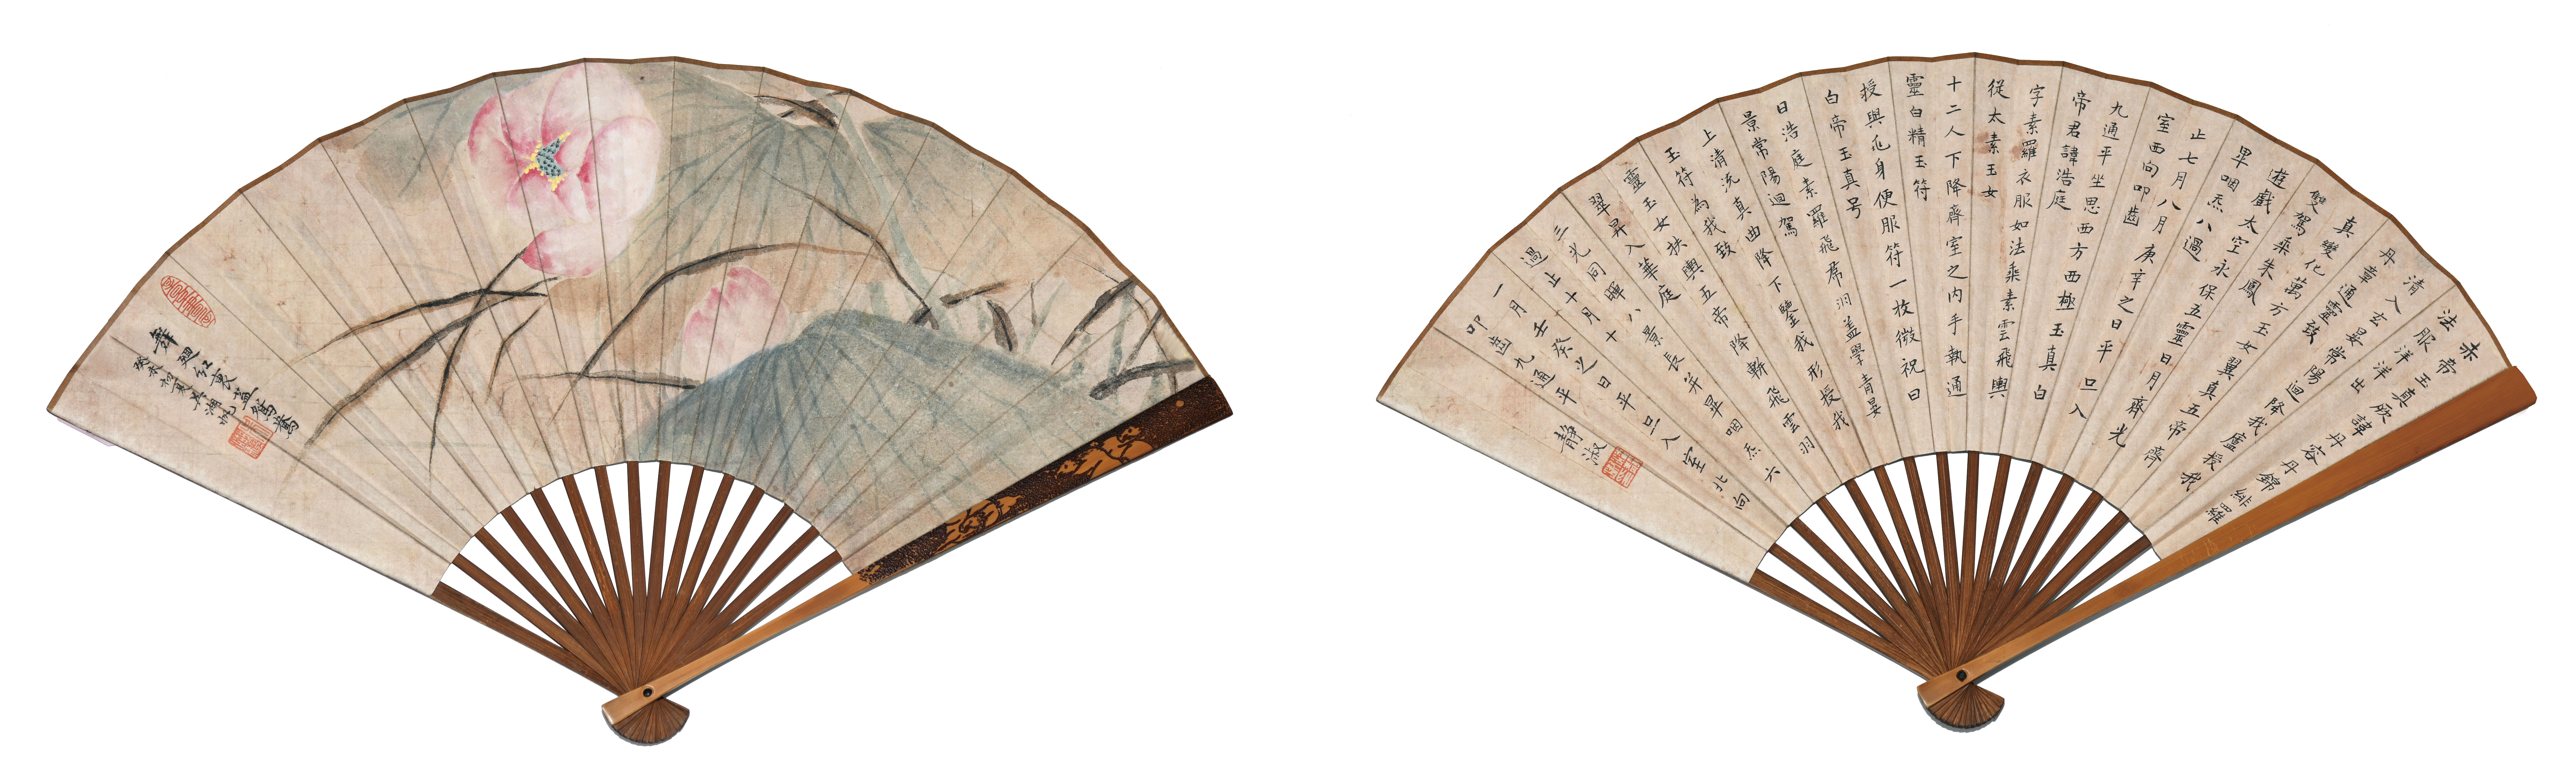 舞迴紅裏蓋鴛鴦
癸未初夏吳湖帆
赤帝玉真厥諱丹容丹錦緋羅
法服洋洋出
清入玄晏常陽迴降我廬授我
丹章通靈致
真變化萬方玉女翼真五帝齊
雙駕乘朱鳳
遊戲太空永保五靈日月齊光
畢咽炁八過
止七月八月庚辛之日平旦入
室西向叩齒
九通平坐思西方西極玉真白
帝君諱浩庭
字素羅衣服如法乘素雲飛輿
從太素玉女
十二人下降齋室之內手執通
靈白精玉符
授與兆身便服符一枚微祝曰
白帝玉真号
曰浩庭素羅飛帬羽蓋學青晏
景常陽迴駕
上清流真曲降下鑒我形授我
玉符為我致
靈玉女扶輿五帝降軿飛雲羽
翠昇入華庭
三光同暉八景長并畢咽炁六
過止十月十
一月壬癸之日平旦入室北向
叩齒九通平
靜淑